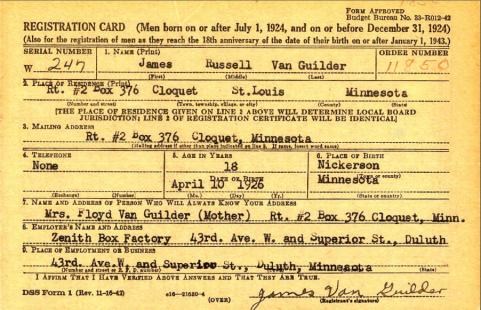 FORM APPROVED
Budget Bureau No. 33-R012-42
REGISTRATION CARD (Men born on or after July 1, 1924, and on or before December 31, 1924)
(Also for the registration of men as they reach the 18th anniversary of the date of their birth on or after January 1, 1943.)
SERIAL NUMBER 1. NAME (Print) ORDER NUMBER
W 247 James Russell Van Guilder 11850
(First) (Middle) (Last)
2. PLACE OF RESIDENCE (Print)
Rt. #2 Box 376 Cloquet St.Louis Minnesota
(Number and street) (Town, township, village, or city) (County) (State)
[THE PLACE OF RESIDENCE GIVEN ON LINE 2 ABOVE WILL DETERMINE LOCAL BOARD
JURISDICTION; LINE 2 OF REGISTRATION CERTIFICATE WILL BE IDENTICAL]
3. MAILING ADDRESS
Rt. #2 Box 376 Cloquet, Minnesota
(Mailing address if other than place indicated on line 2. If same, insert word same)
4. TELEPHONE 5. AGE IN YEARS 6. PLACE OF BIRTH
None 18 Nickerson
DATE OF BIRTH (Town or county)
April 10 1926 Minnesota
(Exchange) (Number) (Mo.) (Day) (Yr.) (State or country)
7. NAME AND ADDRESS OF PERSON WHO WILL ALWAYS KNOW YOUR ADDRESS
Mrs. Floyd Van Guilder (Mother) Rt. #2 Box 376 Cloquet, Minn.
8. EMPLOYER'S NAME AND ADDRESS
Zenith Box Factory 43rd. Ave. W. and Superior St., Duluth
9. PLACE OF EMPLOYMENT OR BUSINESS
43rd. Ave.W. and Superior St., Duluth, Minnesota
(Number and street or R. F. D. number) (Town) (County) (State)
I AFFIRM THAT I HAVE VERIFIED ABOVE ANSWERS AND THAT THEY ARE TRUE.
DSS Form 1 (Rev. 11-16-42) e16—21630-4 James Van Guilder
(OVER) (Registrant's signature)